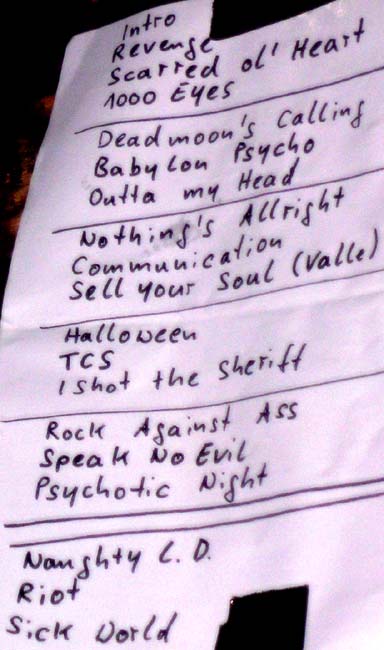 Intro
Revenge
Scarred ol' Heart
1000 Eyes
Deadmoon's Calling
Babylon Psycho
Outta my Head
Nothing's Allright
Communication
Sell your Soul (Valle)
Halloween
TCS
I Shot the Sheriff
Rock Against Ass
Speak No Evil
Psychotic Night
Naughty L.D.
Riot
Sick World